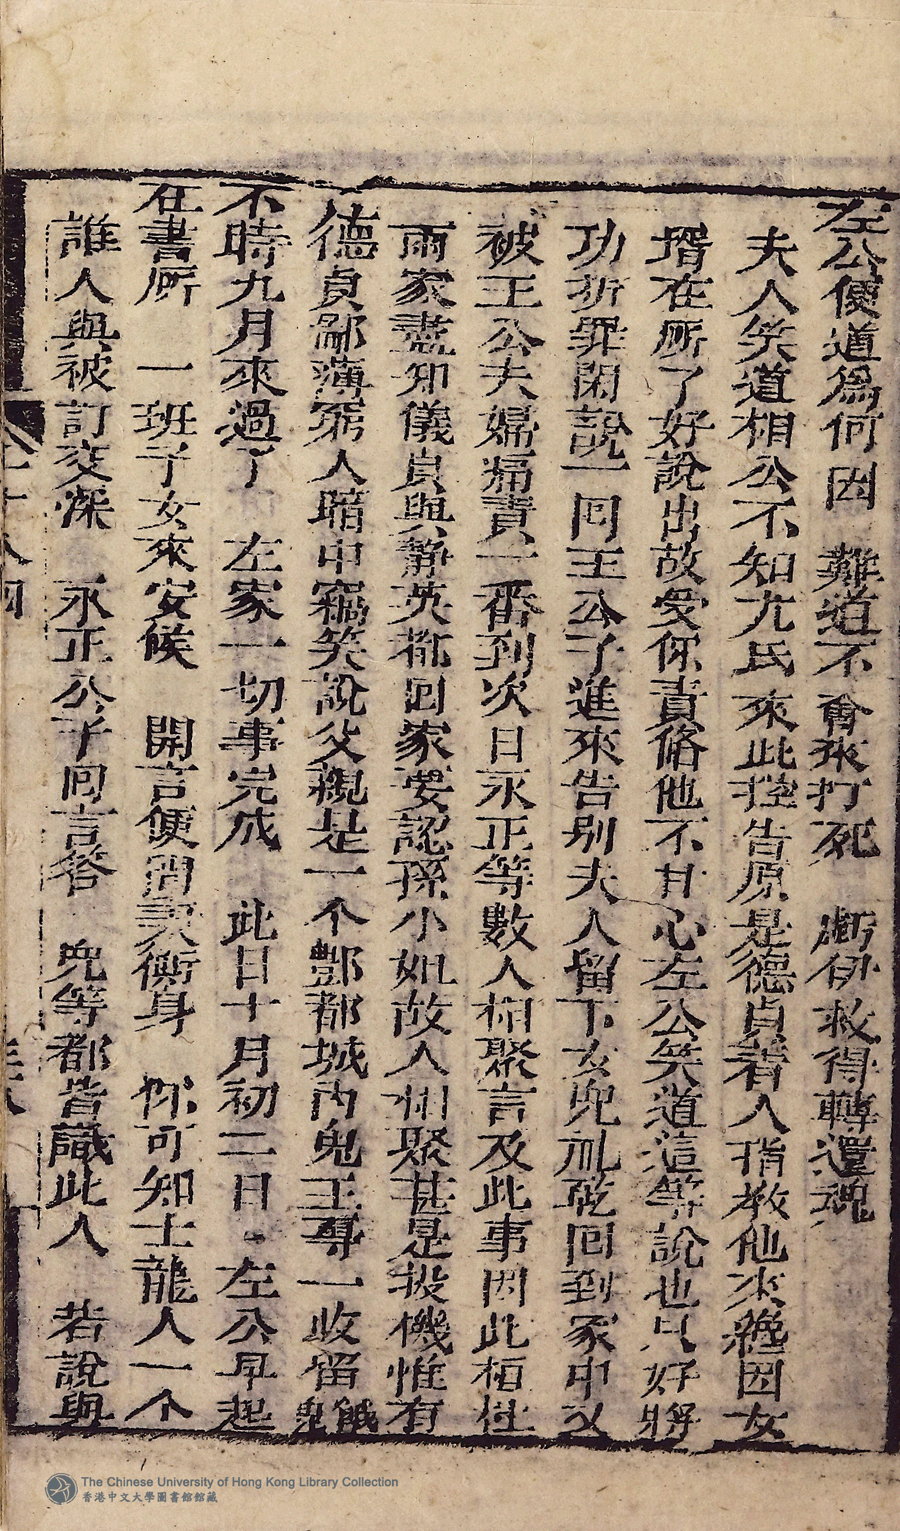 左公便道爲何因　難道不曾來打死　斷伊救得轉還魂
夫人笑道相公不知尤氏來此控告原是德貞着人指教他來總因女
壻在所了好說出故受你責偹他不甘心左公笑道這等說也只好將
功折罪閑說一囘王公子進來告别夫人留下女兒乳𤓰囘到家中又
被王公夫婦痛責一番到次日永正等數人相聚言及此事因此桓桂
兩家盡知儀貞與静英都囘家要認孫小姐故人州聚甚是投機惟有
德貞鄙薄窮人暗中竊笑說父親是一个酆都城内鬼王專一收留餓鬼
不時九月來過了　左家一切事完成　此日十月初二日　左公早起
在書所　一班子女來安候　開言便問契衡身　你可知士龍人一个
誰人與被訂交深　永正公子囘言答　兒等都皆識此人　若說與
二十八囘
The Chinese University of Hong Kong Library Collection
香港中文大學圖書館館藏